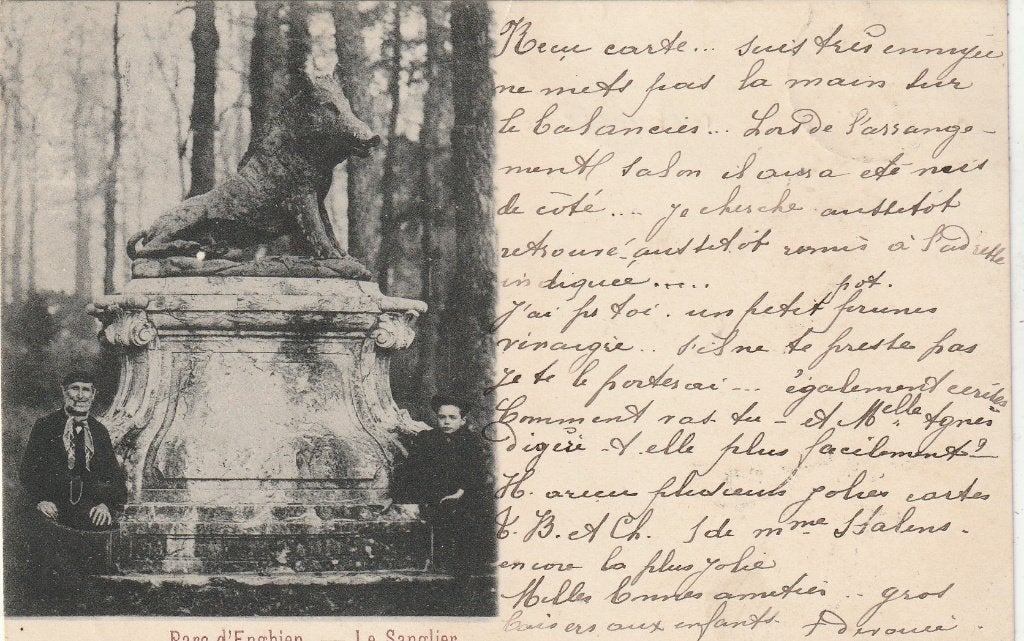 Reçu carte... suis très ennuyée
ne mets pas la main sur
le balancier... Lors de l'arrange-
ment salon il aura été mis
de côté.... Je cherche aussitôt
retrouvé aussitôt remis à l'adresse
indiquée.....
J'ai pr toi un petit pot. prunes
vinaigre.. s'il ne te presse pas
je te le porterai... également cerises
Comment vas tu - et Melle Agnès
digère-t-elle plus facilement?
H. a reçu plusieurs jolies cartes
B. et Ch. de mme
encore la plus jolie
Milles bonnes amitiés.. gros
baisers aux enfants.
Parc d'Enghien — Le Sanglier